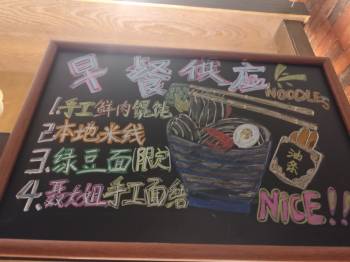 早餐供应
NOODLES
1.手工鲜肉馄饨
2.本地米线
3.绿豆面(限定)
4.聂大姐手工面结
油条
NICE!!